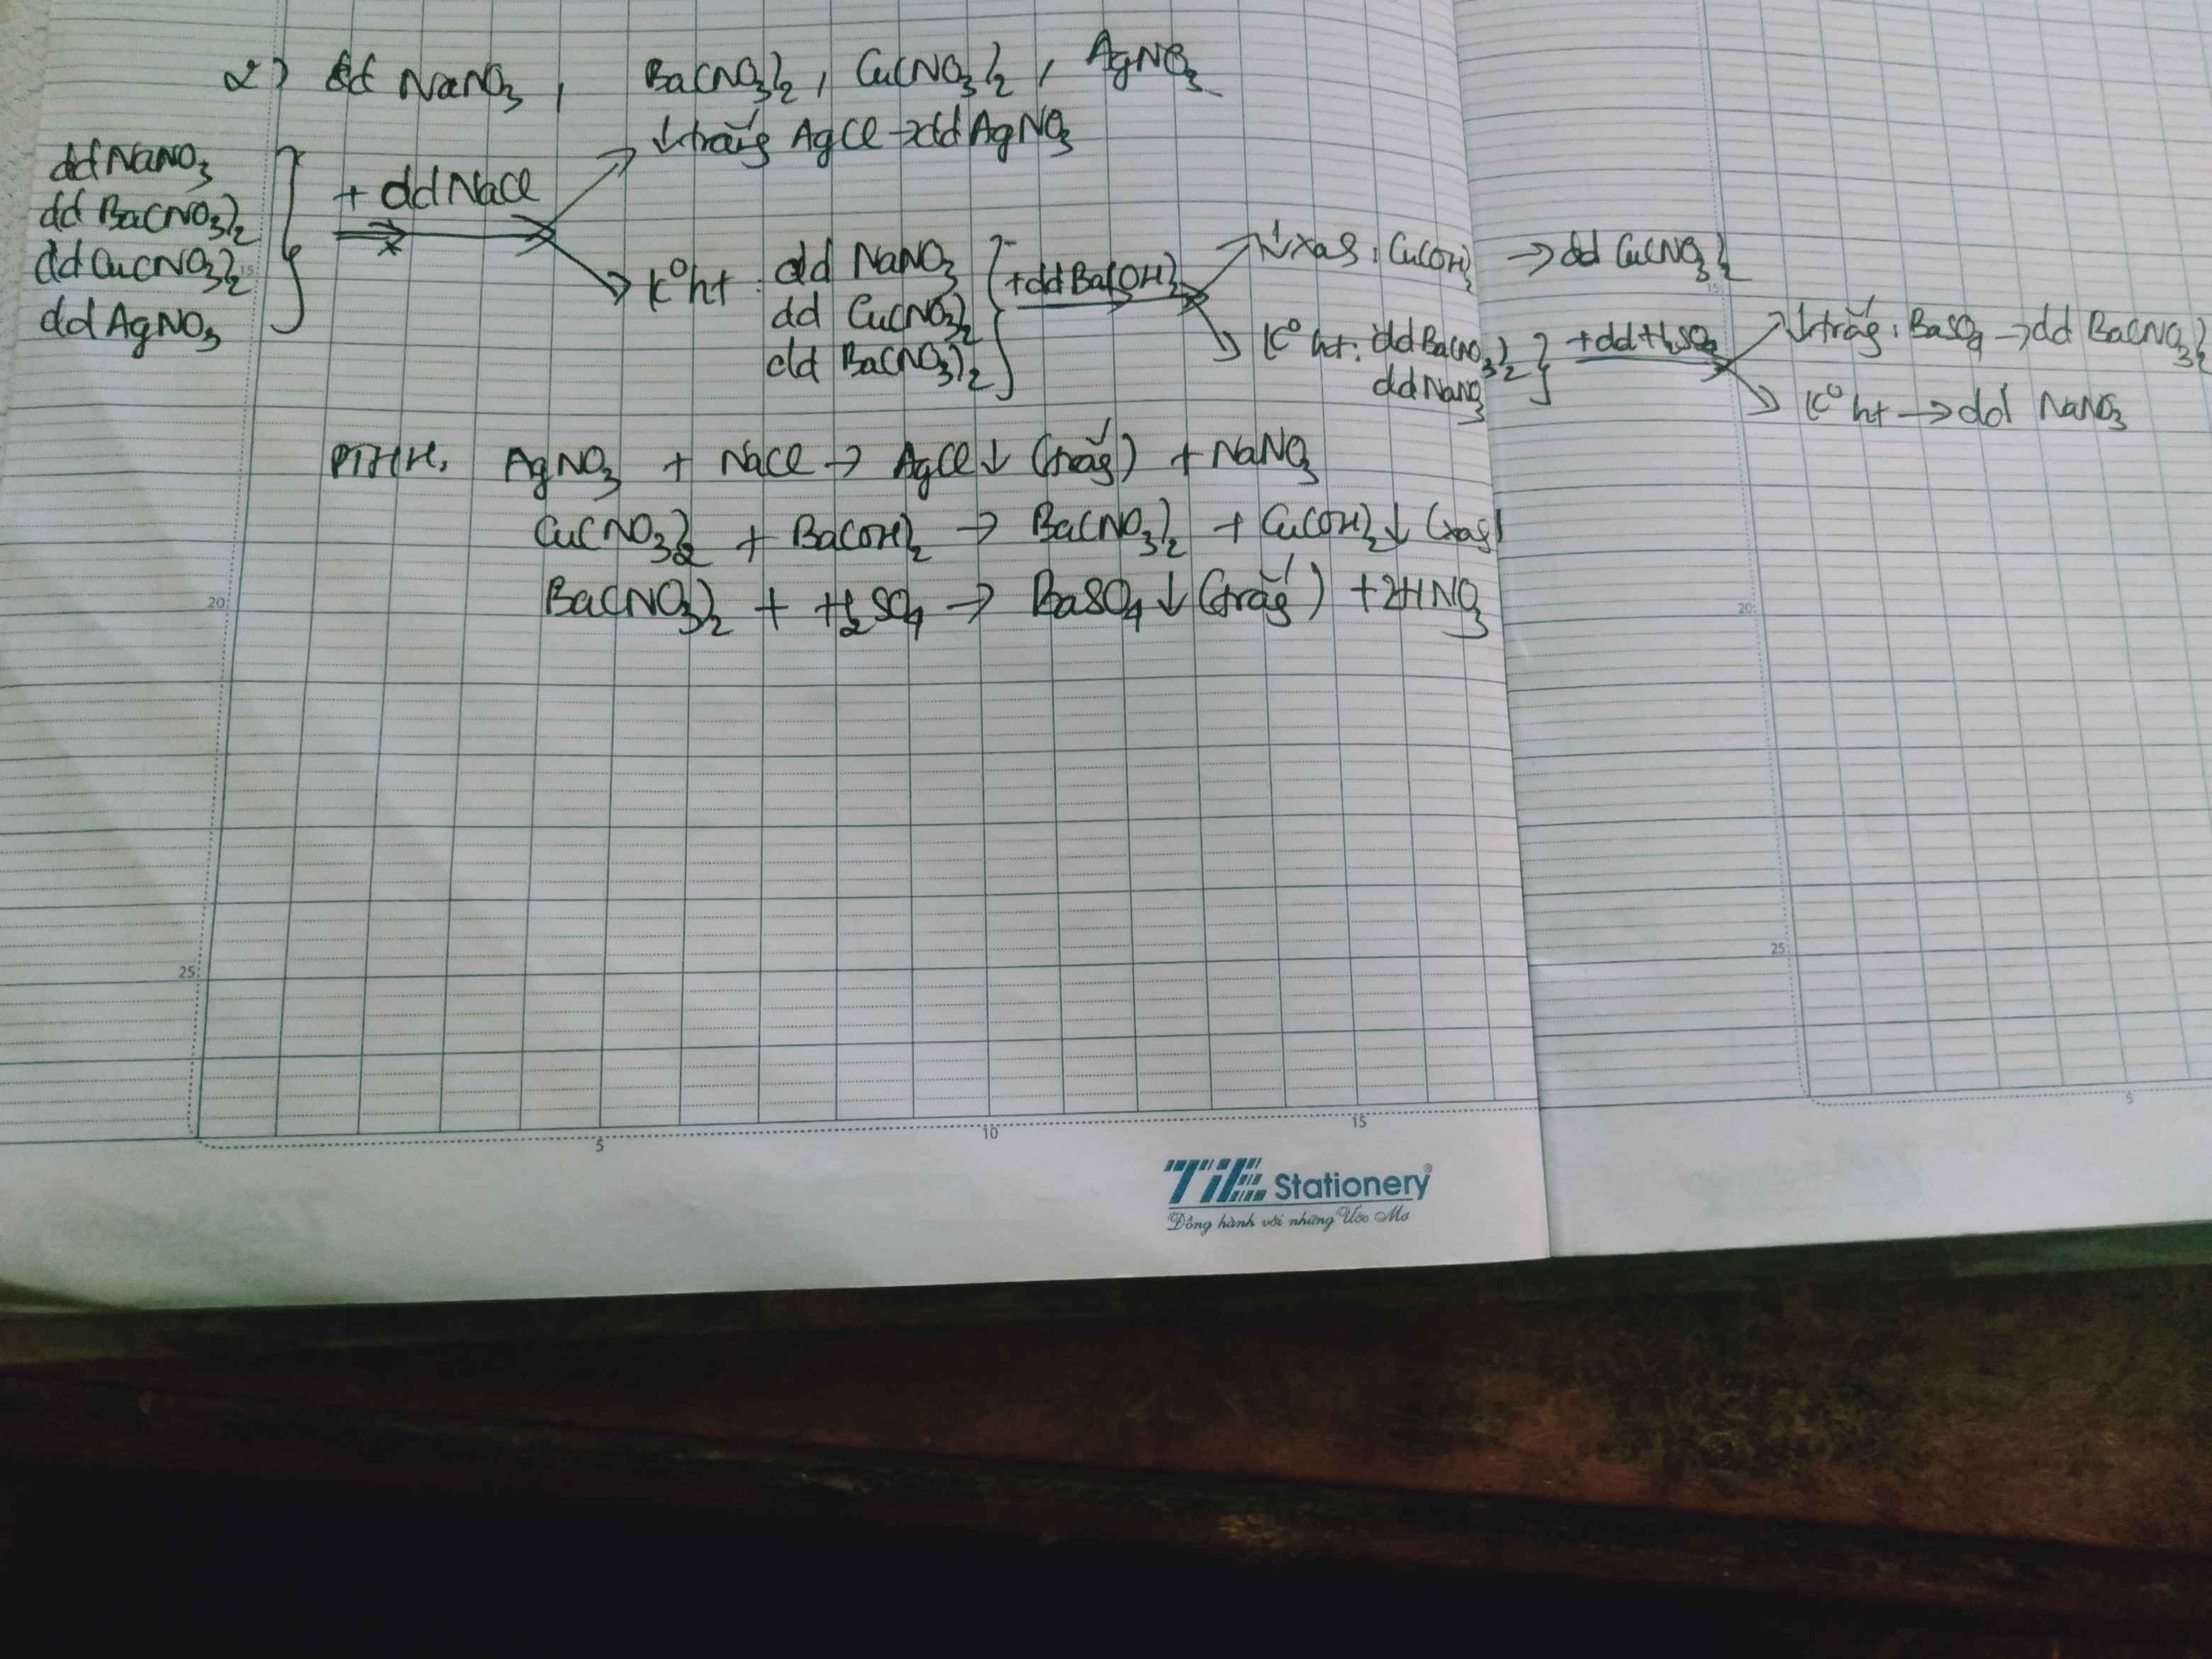 2) dd NaNO3, Ba(NO3)2, Cu(NO3)2, AgNO3
dd NaNO3
dd Ba(NO3)2
dd Cu(NO3)2
dd AgNO3
+ dd NaCl
↓ trắg AgCl → dd AgNO3
K° ht: dd NaNO3
dd Cu(NO3)2
dd Ba(NO3)2
+ dd Ba(OH)2
↓ xah: Cu(OH)2 → dd Cu(NO3)2
K° ht: dd Ba(NO3)2
dd NaNO3
+ dd H2SO4
↓ trắg: BaSO4 → dd Ba(NO3)2
K° ht → dd NaNO3
PTHH: AgNO3 + NaCl → AgCl ↓ (trắg) + NaNO3
Cu(NO3)2 + Ba(OH)2 → Ba(NO3)2 + Cu(OH)2 ↓ (xah)
Ba(NO3)2 + H2SO4 → BaSO4 ↓ (trắg) + 2HNO3
15
15
20
20
25
25
5
10
15
5
TiE Stationery®
Đồng hành với những Ước Mơ